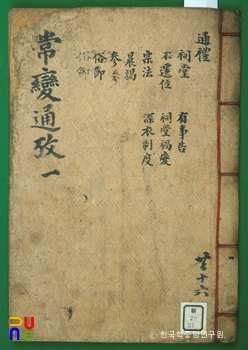 常變通攷 一
通禮
祠堂 有事告
不遷位 祠堂禍變
宗法 深衣制度
晨謁
參
俗節
俗節
共十六
한국학중앙연구원